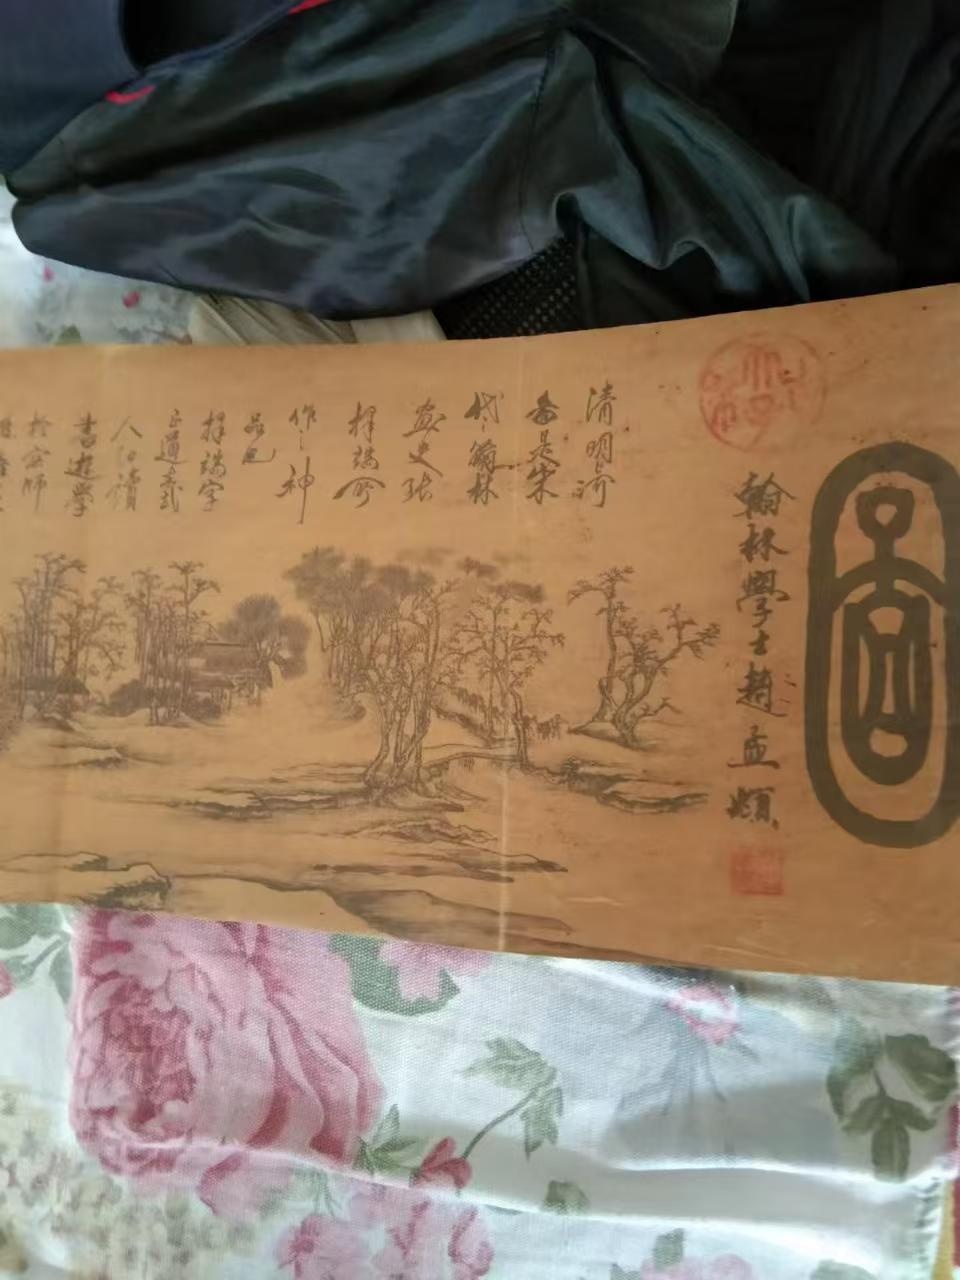 翰林學士趙孟頫
清明上河
啚是宋
代翰林
畫史張
擇端所
作神
品也
擇端字
正道
人幼讀
書遊學
於京師